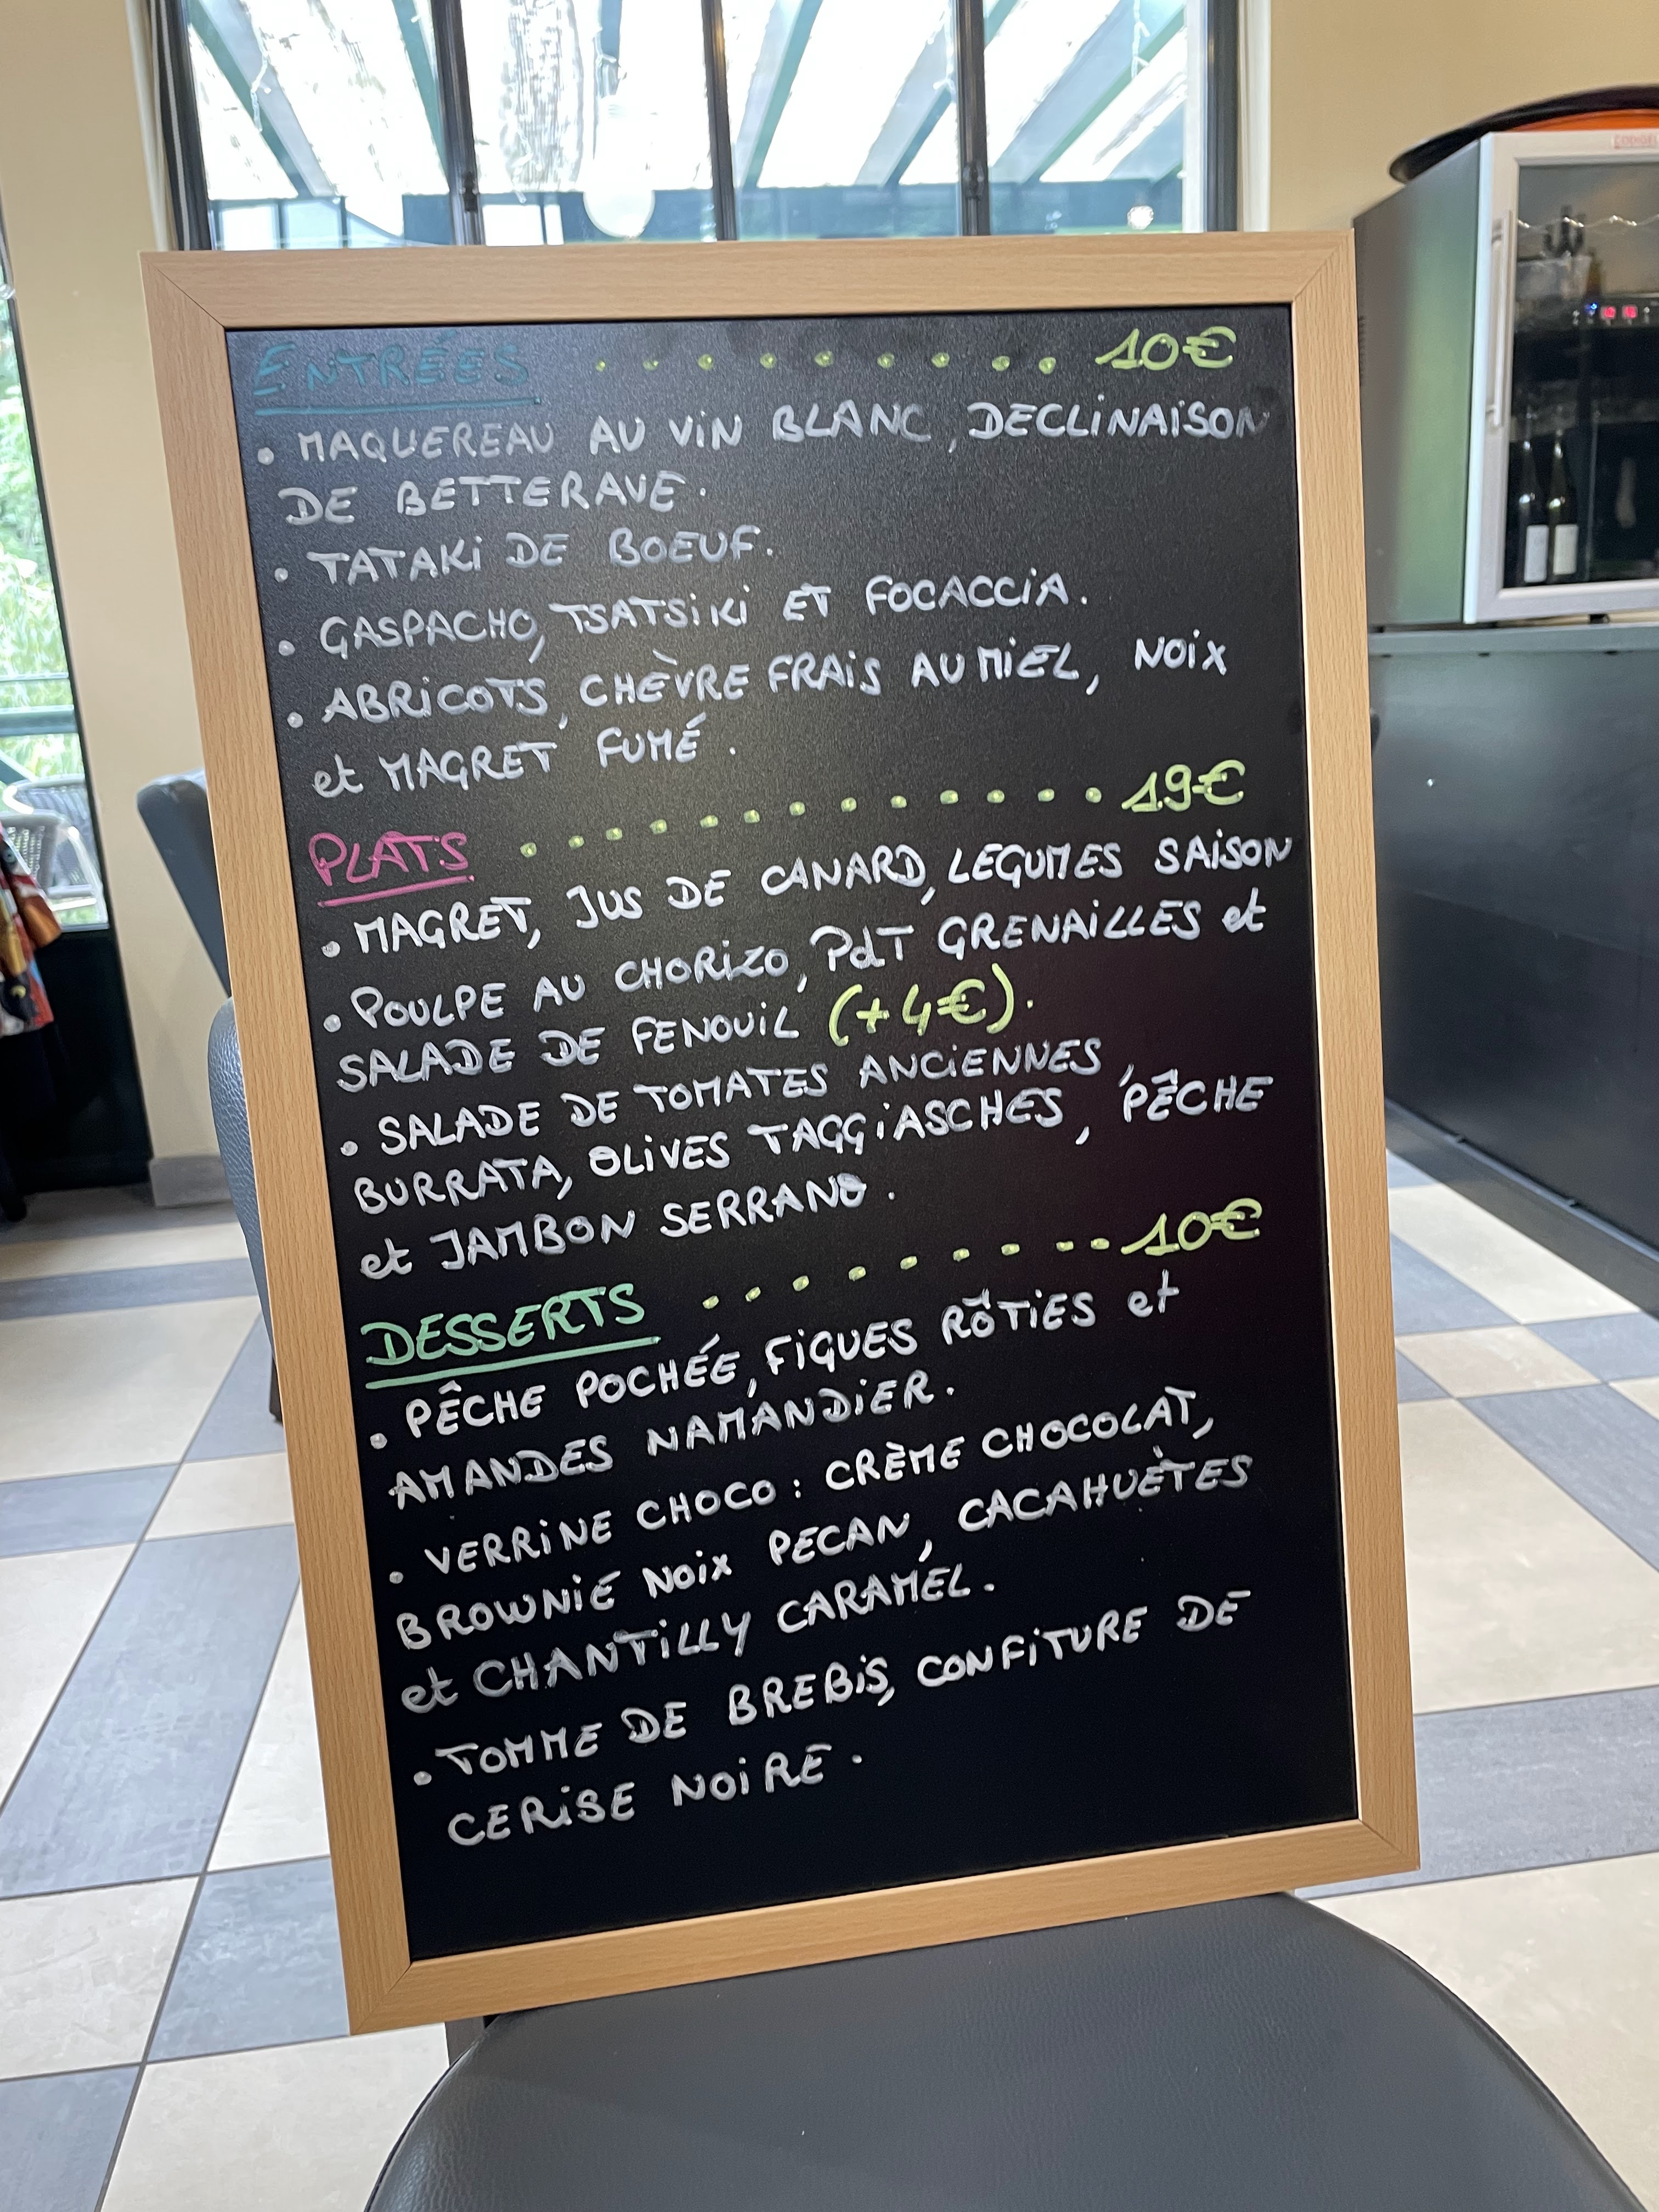 ENTRÉES . . . . . . . . . 10€
• MAQUEREAU AU VIN BLANC, DECLINAISON
DE BETTERAVE.
• TATAKI DE BOEUF.
• GASPACHO, TSATSIKI ET FOCACCIA.
• ABRICOTS, CHÈVRE FRAIS AU MIEL, NOIX
et MAGRET FUMÉ.
PLATS . . . . . . . . . . . . 19€
• MAGRET, JUS DE CANARD, LEGUMES SAISON
• POULPE AU CHORIZO, PdT GRENAILLES et
SALADE DE FENOUIL (+4€).
• SALADE DE TOMATES ANCIENNES,
BURRATA, OLIVES TAGGIASCHES, PÊCHE
et JAMBON SERRANO.
DESSERTS . . . . . . . . . 10€
• PÊCHE POCHÉE, FIGUES RÔTIES et
AMANDES NAMANDIER.
• VERRINE CHOCO : CRÈME CHOCOLAT,
BROWNIE NOIX PECAN, CACAHUÈTES
et CHANTILLY CARAMEL.
• TOMME DE BREBIS, CONFITURE DE
CERISE NOIRE.